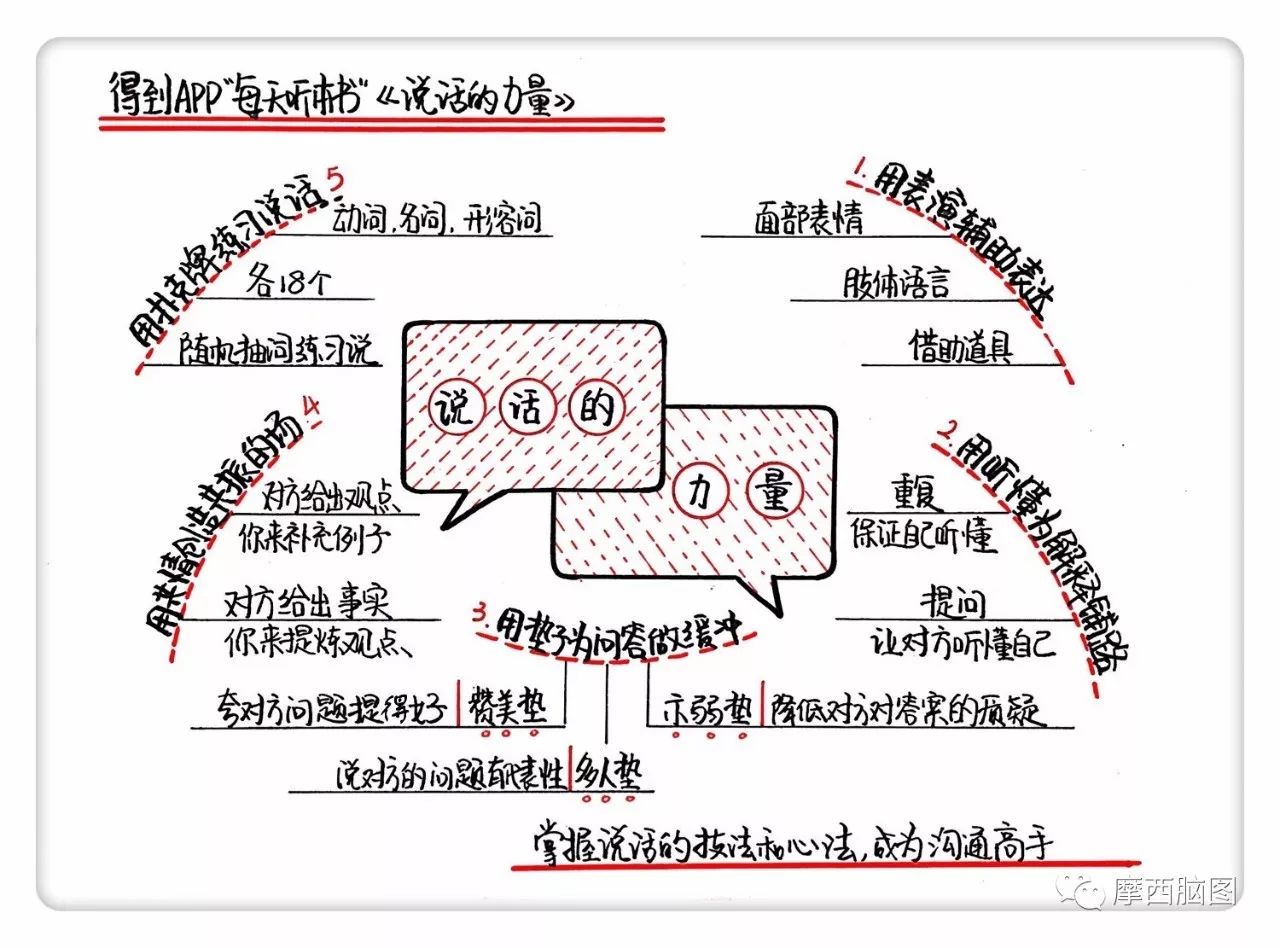 得到APP"每天听本书"《说话的力量》
说话的
力量
1.用表演辅助表达
面部表情
肢体语言
借助道具
2.用听懂为解释铺路
重复
保证自己听懂
提问
让对方听懂自己
3.用垫子为问答做缓冲
夸对方问题提得好 赞美垫
示弱垫 降低对方对答案的质疑
说对方的问题有代表性 多人垫
4 用共情创造共振的场
对方给出观点
你来补充例子
对方给出事实
你来提炼观点、
5 用扑克牌练习说话
动词,名词,形容词
各18个
随机抽词练习说
掌握说话的技法和心法,成为沟通高手
摩西脑图